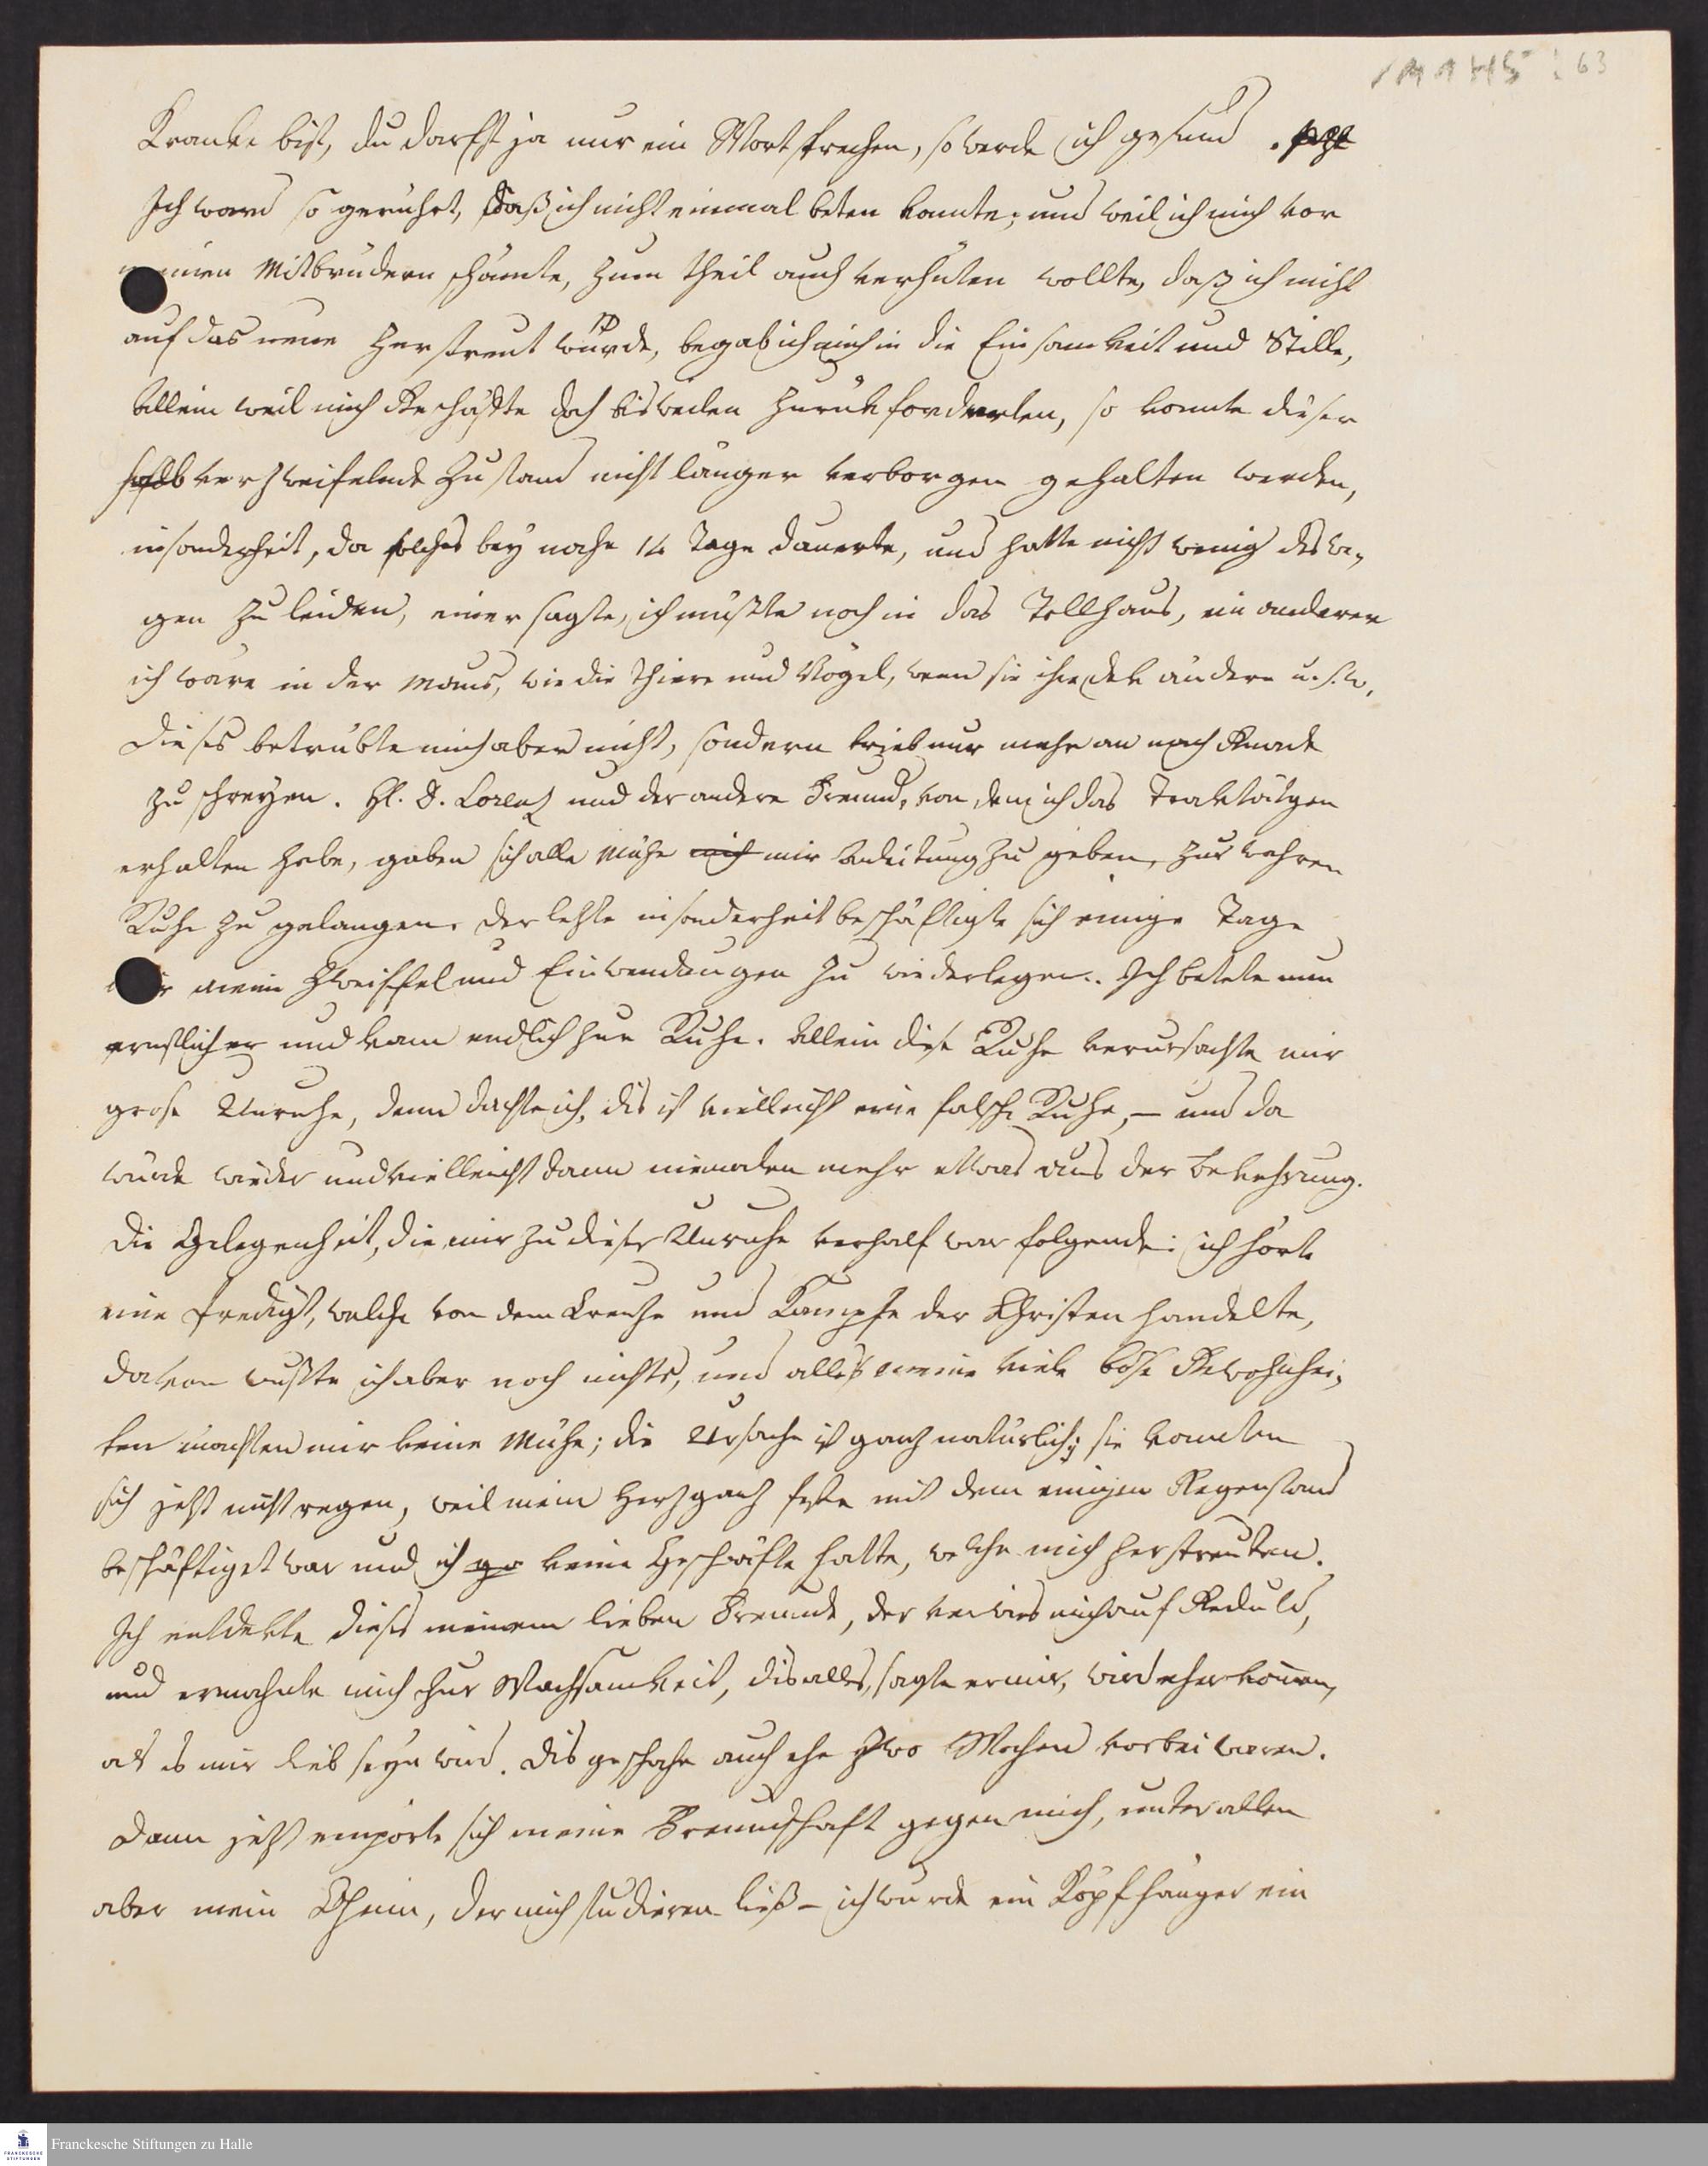 1 A 1 H 5 : 63
Kranke bist, du darfst ja nur ein Wort sprechen, so werde ich gesund.
Ich ward so gerührt, daß ich nicht einmal beten konnte; und weil ich mich vor
meinen Mitbrüdern schämte, zum theil auch verhüten wollte, daß ich nicht
auf das neue zerstreut würde, begab ich mich in die Einsamkeit und Stille,
Allein weil mich Geschäfte doch bisweilen zurük forderten, so konnte dieser
halb verzweifelnde Zustand nicht länger verborgen gehalten werden,
insonderheit, da solches bey nahe 14 Tage dauerte, und hatte nicht wenig deswe-
gen zu leiden, einer sagte, ich müßte noch in das Tollhaus, ein anderer
ich wäre in der Maus, wie die Thiere und Vögel, wenn sie ihre ändern u.s.w.
Dieses betrübte mich aber nicht, sondern trieb nur mehr an nach Gnade
zu schreyen. H. D. Lorenz und der andere Freund, von dem ich das Traktätgen
erhalten habe, gaben sich alle Mühe mich mir Anleitung zu geben, zur wahren
Ruhe zu gelangen. Der lezte insonderheit beschäftigte sich einige Tage
mir meine Zweiffel und Einwendungen zu wiederlegen. Ich betete nun
ernstlicher und kam endlich zur Ruhe. Allein diese Ruhe verursachte mir
grose Unruhe, denn dachte ich, dis ist vielleicht eine falsche Ruhe, – und da
würde wieder und vielleicht dann niemalen mehr etwas aus der Bekehrung.
Die Gelegenheit, die mir zu dieser Unruhe verhalf war folgende: ich hörte
eine Predigt, welche von dem Creuze und Kampfe der Christen handelte,
davon wußte ich aber noch nichts, und alle meine viele böse Gewohnhei-
ten machten mir keine Mühe; die Ursache ist ganz natürlich; sie konnten
sich jezt nicht regen, weil mein Herz ganz feste mit dem einigen Gegenstand
beschäftiget war und ich ga keine Geschäfte hatte, welche mich zerstreuten.
Ich entdekte dieses meinem lieben Freunde, der verwies mich auf Gedult,
und ermahnte mich zur Wachsamkeit, dis alles, sagte er mir, wird eher kommen,
als es mir lieb seyn wird. Dis geschahe auch ehe zwo Wochen vorbei waren.
Dann jezt empörte sich meine Freundschaft gegen mich, unter allen
aber mein Oheim, der mich studieren ließ – ich würde ein Kopfhänger ein
Franckesche Stiftungen zu Halle